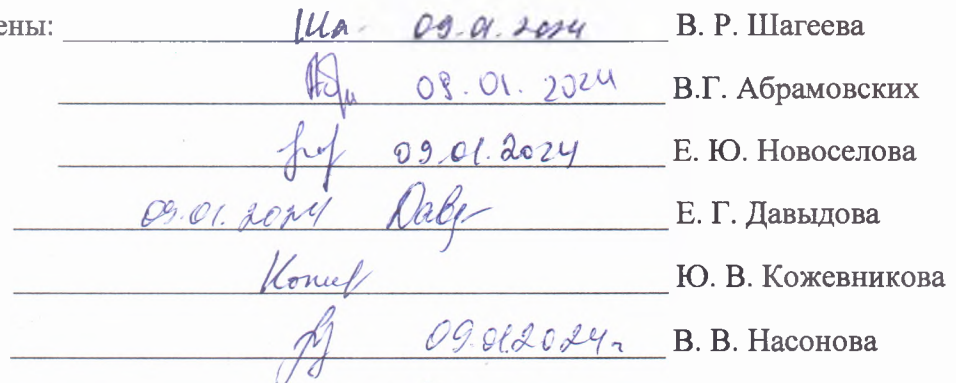 ены: Ша 09.01.2024 В. Р. Шагеева
09.01.2024 В.Г. Абрамовских
09.01.2024 Е. Ю. Новоселова
09.01.2024 Давд Е. Г. Давыдова
Кожев Ю. В. Кожевникова
09.01.2024г В. В. Насонова